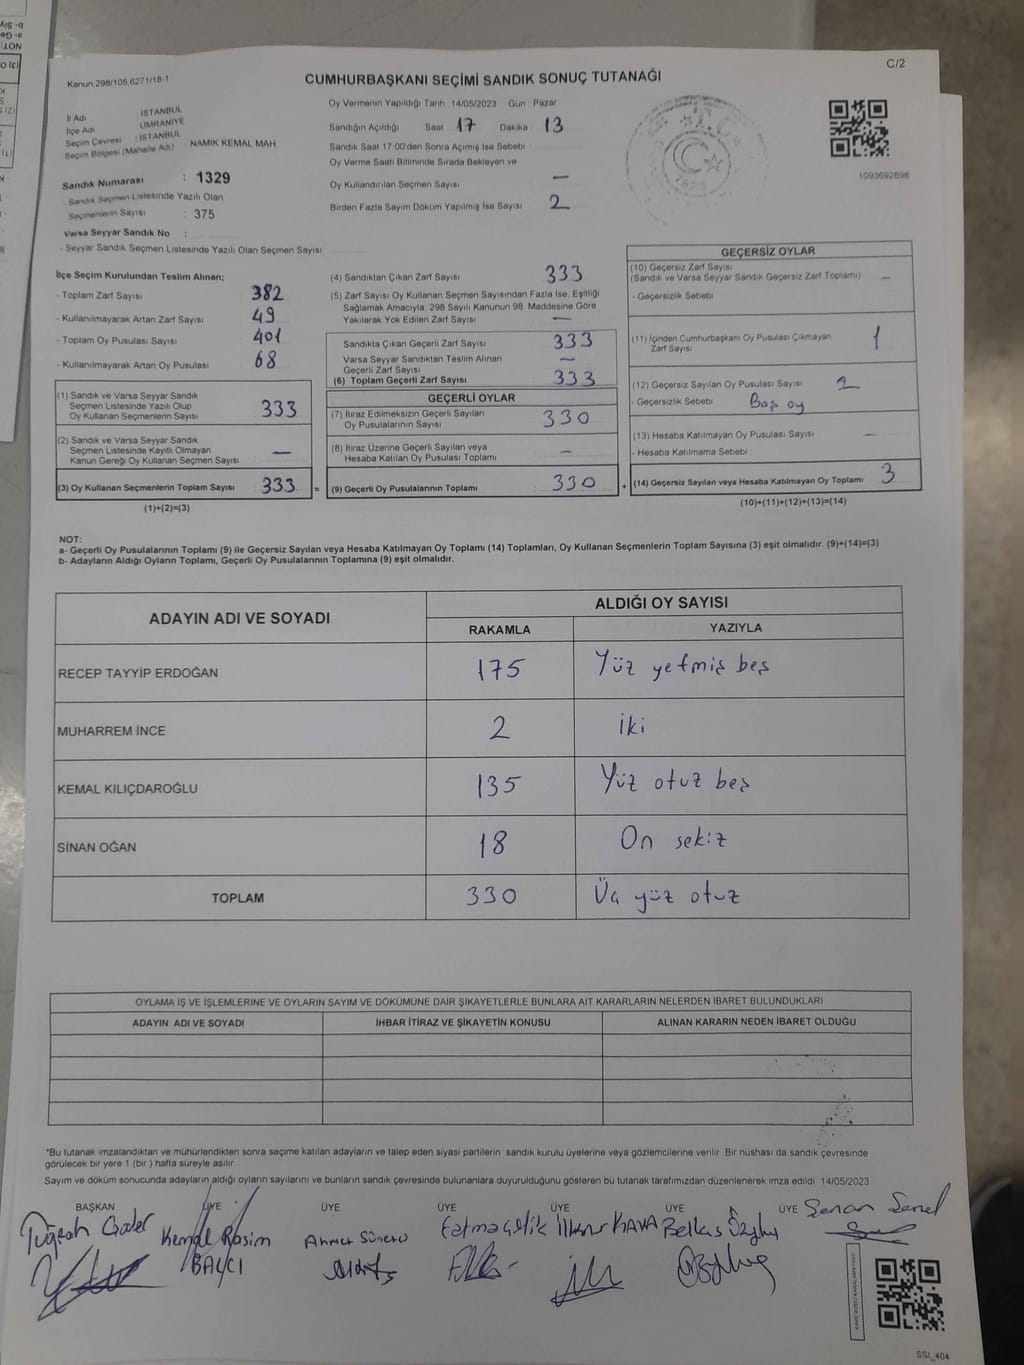 C/2
Kanun,298/105,6271/18-1
CUMHURBAŞKANI SEÇİMİ SANDIK SONUÇ TUTANAĞI
İl Adı : İSTANBUL
İlçe Adı : ÜMRANİYE
Seçim Çevresi : İSTANBUL
Seçim Bölgesi (Mahalle Adı) NAMIK KEMAL MAH
Sandık Numarası : 1329
- Sandık Seçmen Listesinde Yazılı Olan
Seçmenlerin Sayısı : 375
Varsa Seyyar Sandık No :
- Seyyar Sandık Seçmen Listesinde Yazılı Olan Seçmen Sayısı
Oy Vermenin Yapıldığı Tarih: 14/05/2023 Gün Pazar
Sandığın Açıldığı Saat 17 Dakika 13
Sandık Saat 17.00'den Sonra Açımış İse Sebebi
Oy Verme Saati Bitiminde Sırada Bekleyen ve
Oy Kullandırılan Seçmen Sayısı —
Birden Fazla Sayım Döküm Yapılmış İse Sayısı 2
T.C.
1093692898
İlçe Seçim Kurulundan Teslim Alınan;
- Toplam Zarf Sayısı 382
- Kullanılmayarak Artan Zarf Sayısı 49
- Toplam Oy Pusulası Sayısı 401
- Kullanılmayarak Artan Oy Pusulası 68
(1) Sandık ve Varsa Seyyar Sandık
Seçmen Listesinde Yazılı Olup
Oy Kullanan Seçmenlerin Sayısı 333
(2) Sandık ve Varsa Seyyar Sandık
Seçmen Listesinde Kayıtlı Olmayan
Kanun Gereği Oy Kullanan Seçmen Sayısı —
(3) Oy Kullanan Seçmenlerin Toplam Sayısı 333 =
(1)+(2)=(3)
(4) Sandıktan Çıkan Zarf Sayısı 333
(5) Zarf Sayısı Oy Kullanan Seçmen Sayısından Fazla İse, Eşitliği
Sağlamak Amacıyla, 298 Sayılı Kanunun 98. Maddesine Göre
Yakılarak Yok Edilen Zarf Sayısı —
Sandıkta Çıkan Geçerli Zarf Sayısı 333
Varsa Seyyar Sandıktan Teslim Alınan
Geçerli Zarf Sayısı —
(6) Toplam Geçerli Zarf Sayısı 333
GEÇERLİ OYLAR
(7) İtiraz Edilmeksizin Geçerli Sayılan
Oy Pusulalarının Sayısı 330
(8) İtiraz Üzerine Geçerli Sayılan veya
Hesaba Katılan Oy Pusulası Toplamı —
(9) Geçerli Oy Pusulalarının Toplamı 330 +
GEÇERSİZ OYLAR
(10) Geçersiz Zarf Sayısı
(Sandık ve Varsa Seyyar Sandık Geçersiz Zarf Toplamı) —
- Geçersizlik Sebebi
(11) İçinden Cumhurbaşkanı Oy Pusulası Çıkmayan
Zarf Sayısı 1
(12) Geçersiz Sayılan Oy Pusulası Sayısı 2
- Geçersizlik Sebebi Boş oy
(13) Hesaba Katılmayan Oy Pusulası Sayısı —
- Hesaba Katılmama Sebebi
(14) Geçersiz Sayılan veya Hesaba Katılmayan Oy Toplamı 3
(10)+(11)+(12)+(13)=(14)
NOT:
a- Geçerli Oy Pusulalarının Toplamı (9) ile Geçersiz Sayılan veya Hesaba Katılmayan Oy Toplamı (14) Toplamları, Oy Kullanan Seçmenlerin Toplam Sayısına (3) eşit olmalıdır. (9)+(14)=(3)
b- Adayların Aldığı Oyların Toplamı, Geçerli Oy Pusulalarının Toplamına (9) eşit olmalıdır.
ADAYIN ADI VE SOYADI ALDIĞI OY SAYISI
RAKAMLA YAZIYLA
RECEP TAYYİP ERDOĞAN 175 Yüz yetmiş beş
MUHARREM İNCE 2 İki
KEMAL KILIÇDAROĞLU 135 Yüz otuz beş
SİNAN OĞAN 18 On sekiz
TOPLAM 330 Üç yüz otuz
OYLAMA İŞ VE İŞLEMLERİNE VE OYLARIN SAYIM VE DÖKÜMÜNE DAİR ŞİKAYETLERLE BUNLARA AİT KARARLARIN NELERDEN İBARET BULUNDUKLARI
ADAYIN ADI VE SOYADI İHBAR İTİRAZ VE ŞİKAYETİN KONUSU ALINAN KARARIN NEDEN İBARET OLDUĞU
*Bu tutanak imzalandıktan ve mühürlendikten sonra seçime katılan adayların ve talep eden siyasi partilerin sandık kurulu üyelerine veya gözlemcilerine verilir. Bir nüshası da sandık çevresinde
görülecek bir yere 1 (bir) hafta süreyle asılır.
Sayım ve döküm sonucunda adayların aldığı oyların sayılarını ve bunların sandık çevresinde bulunanlara duyurulduğunu gösteren bu tutanak tarafımızdan düzenlenerek imza edildi. 14/05/2023
BAŞKAN ÜYE ÜYE ÜYE ÜYE ÜYE ÜYE
Kemal Rasim BALCI
Fatma Çelik
İlknur KAVA
Belkıs
Şenel
SSI_404